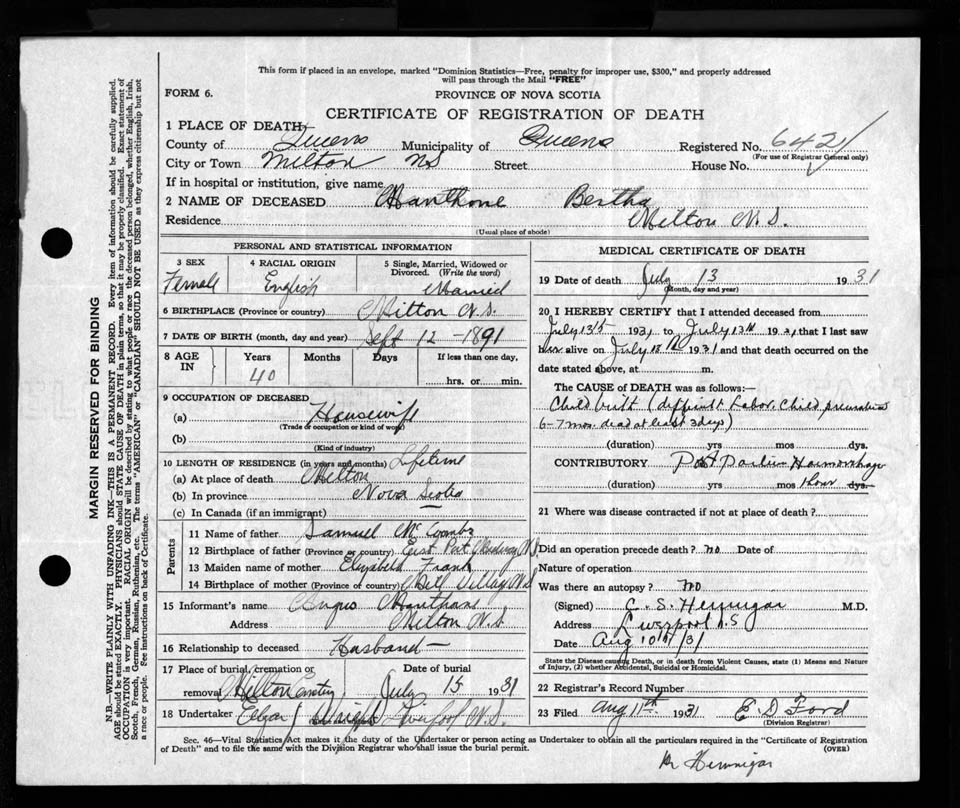 This form if placed in an envelope, marked "Dominion Statistics—Free, penalty for improper use, $300," and properly addressed
will pass through the Mail "FREE"
FORM 6.
PROVINCE OF NOVA SCOTIA
CERTIFICATE OF REGISTRATION OF DEATH
1 PLACE OF DEATH
County of Queens Municipality of Queens Registered No. 642
(For use of Registrar General only)
City or Town Milton NS Street House No.
If in hospital or institution, give name
2 NAME OF DECEASED Bertha
Residence Milton N.S.
(Usual place of abode)
PERSONAL AND STATISTICAL INFORMATION
3 SEX 4 RACIAL ORIGIN 5 Single, Married, Widowed or
Divorced. (Write the word)
Female English Married
6 BIRTHPLACE (Province or country) Milton N.S.
7 DATE OF BIRTH (month, day and year) Sept 12 - 1891
8 AGE IN Years Months Days If less than one day,
40 hrs. or min.
9 OCCUPATION OF DECEASED
(a) Housewife
(Trade or occupation or kind of work)
(b)
(Kind of industry)
10 LENGTH OF RESIDENCE (in years and months) Lifetime
(a) At place of death Milton
(b) In province Nova Scotia
(c) In Canada (if an immigrant)
Parents
11 Name of father Samuel
12 Birthplace of father (Province or country) East Port Medway N.S.
13 Maiden name of mother Elizabeth Frank
14 Birthplace of mother (Province or country) Mill Village N.S.
15 Informant's name Angus
Address Milton N.S.
16 Relationship to deceased Husband
17 Place of burial, cremation or Date of burial
removal Milton July 15 1931
18 Undertaker Liverpool N.S.
MEDICAL CERTIFICATE OF DEATH
19 Date of death July 13 1931
(Month, day and year)
20 I HEREBY CERTIFY that I attended deceased from
July 13th 1931, to July 13th 1931, that I last saw
alive on July 13th 1931 and that death occurred on the
date stated above, at m.
The CAUSE of DEATH was as follows:—
Child birth (difficult Labor. Child premature
6-7 mos. dead at least 3 days)
(duration) yrs mos dys.
CONTRIBUTORY Post Partum Haemorrhage
(duration) yrs mos 1 hour dys.
21 Where was disease contracted if not at place of death?
Did an operation precede death? no Date of
Nature of operation
Was there an autopsy? no
(Signed) C. S. Hennigar M.D.
Address Liverpool N.S
Date Aug 10th/31
State the Disease causing Death, or in death from Violent Causes, state (1) Means and Nature
of Injury, (2) whether Accidental, Suicidal or Homicidal.
22 Registrar's Record Number
23 Filed Aug 11th 1931 E D Ford
(Division Registrar)
Sec. 46—Vital Statistics Act makes it the duty of the Undertaker or person acting as Undertaker to obtain all the particulars required in the "Certificate of Registration
of Death" and to file the same with the Division Registrar who shall issue the burial permit.
(OVER)
Dr Hennigar
MARGIN RESERVED FOR BINDING
N.B.—WRITE PLAINLY WITH UNFADING INK—THIS IS A PERMANENT RECORD. Every item of information should be carefully supplied.
AGE should be stated EXACTLY. PHYSICIANS should STATE CAUSE OF DEATH in plain terms, so that it may be properly classified. Exact statement of
OCCUPATION is very important. RACIAL ORIGIN will be described by stating to what people or race the deceased person belonged, whether English, Irish,
Scotch, French, German, Russian, Ruthenian, etc. The terms "AMERICAN" or "CANADIAN" SHOULD NOT BE USED as they express citizenship but not
a race or people. See instructions on back of Certificate.